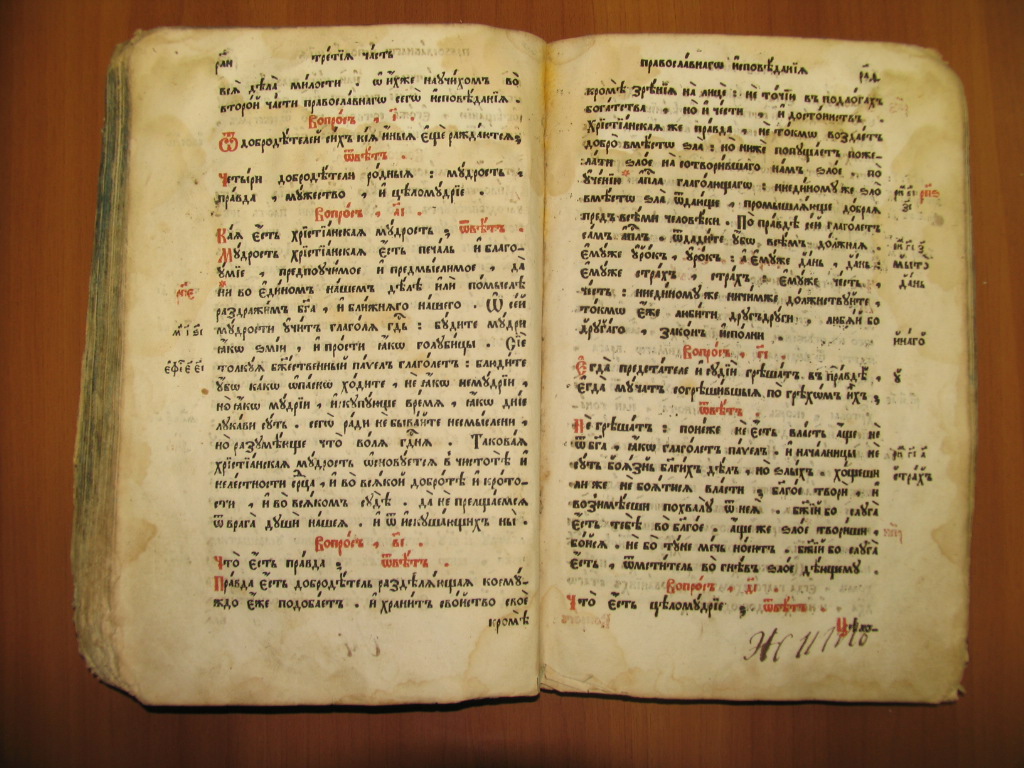 трéтїѧ чáсть
всѧ̀ дѣла̀ ми́лости . ѡ҆ и҆́хже наꙋчи́хомъ во
второ́й ча́сти правосла́внагѡ сегѡ̀ и҆сповѣ́данїѧ .
Вопро́съ , і҃ .
Ѿ добродѣ́телей си́хъ кїѧ̀ и҆ны́ѧ є҆щѐ ражда́ютсѧ;
ѿвѣ́тъ .
Четы́ри добродѣ́тели рѡ́дныѧ : мꙋ́дрость ,
пра́вда , мꙋ́жество , и҆ цѣломꙋ́дрїе .
Вопро́съ , а҃і .
Ка́ѧ є҆́сть хрїстїа́нскаѧ мꙋ́дрость ; ѿвѣ́тъ .
Мꙋ́дрость хрїстїа́нскаѧ є҆́сть печа́ль и҆ благо-
ꙋ́мїе , предпоꙋчи́мое и҆ предмы́слимое , да̀
ни во є҆ди́номъ на́шемъ дѣ́лѣ и҆лѝ по́мыслѣ
раздражи́мъ бг҃а , и҆ бли́жнѧго на́шего . Ѡ҆ се́й
мꙋ́дрости ꙋ҆чи́тъ глаго́лѧ гд҇ь : бꙋ́дите мꙋ́дри
ꙗ҆́кѡ ѕмїѝ , и҆ про́сти ꙗ҆́кѡ го́лꙋбицы . Сїѐ
толкꙋ́ѧ бж҇е́ственный па́ѵелъ глаго́летъ : блюди́те
ᲂу҆́бѡ ка́кѡ ѡ҆па́снѡ хо́дите , не ꙗ҆́кѡ немꙋ́дрїи ,
но ꙗ҆́кѡ мꙋ́дрїи , и҆скꙋпꙋ́юще вре́мѧ , ꙗ҆́кѡ дні́е
лꙋка́ви сꙋ́ть . сегѡ̀ ра́ди не быва́йте несмы́слени ,
но разꙋмѣ́юще что̀ во́лѧ гд҇нѧ . Такова́ѧ
хрїстїа́нскаѧ мꙋ́дрость ѡ҆снꙋ́етсѧ в чистотѣ̀ и҆
неле́стности се́рдца , и҆ во всѧ́кой добро́тѣ и҆ кро́то-
сти , и҆ во всѧ́комъ сꙋдѣ̀ . да не прельща́емсѧ
ѿ врага̀ дꙋшѝ на́шеѧ . и҆ ѿ и҆скꙋша́ющихъ ны̀ .
Вопро́съ , в҃і .
Что̀ є҆́сть пра́вда ; ѿвѣ́тъ .
Пра́вда є҆́сть добродѣ́тель раздѣлѧ́ющаѧ комꙋ́-
ждо є҆́же подоба́етъ . и҆ храни́тъ сво́йство своѐ
кромѣ̀
правосла́внагѡ и҆сповѣ́данїѧ
кромѣ̀ зрѣ́нїѧ на лицѐ : не то́чїи въ подло́гахъ
бога́тства , но и҆ че́сти , и҆ досто́инствъ .
Хрїстїа́нскаѧ же пра́вда , не то́кмѡ воздае́тъ
добро̀ вмѣ́стѡ ѕла̀ : но нижѐ попꙋща́етъ поже-
ла́ти ѕло́е на сотвори́вшаго на́мъ ѕло́е . по
ᲂу҆че́нїю а҆пл҇а глаго́лющагѡ : ниеди́номꙋже ѕло̀
вмѣ́стѡ ѕла̀ ѿда́юще , промышлѧ́юще до́браѧ
пред̾ всѣ́ми человѣ́ки . По пра́вдѣ се́й глаго́летъ
са́мъ а҆пл҇ъ . ѿдади́те ᲂу҆́бѡ всѣ̑мъ до́лжнаѧ .
є҆мꙋ́же ᲂу҆ро́къ , ᲂу҆ро́къ : а є҆мꙋ́же да́нь , да́нь :
є҆мꙋ́же стра́хъ , стра́хъ : є҆мꙋ́же че́сть ,
че́сть : ниеди́номꙋже ничи́мже до́лжнствꙋйте ,
то́кмѡ є҆́же люби́ти дрꙋ́гъ дрꙋ́га , любѧ́й бо
дрꙋга́го , зако́нъ и҆спо́лни .
Вопро́съ , г҃і .
Є҆гда̀ предста́теле и҆ сꙋдїѝ грѣша́тъ въ пра́вдѣ ,
є҆гда̀ мꙋ́чатъ согрѣши́вшыѧ по грѣхѡ́мъ и҆́хъ ;
ѿвѣ́тъ .
Не грѣша́тъ : поне́же нѣ́сть вла́сть а҆́ще не
ѿ бг҃а , ꙗ҆́кѡ глаго́летъ па́ѵелъ . и҆ нача́лницы не
сꙋ́ть боѧ́знь благи́хъ дѣ́лъ , но ѕлы́хъ . хо́щеши
ли же не боѧ́тисѧ вла́сти ; благо́е творѝ , и҆
возимѣ́еши похвалꙋ̀ ѿ неѧ̀ . бж҃їй бо слꙋга̀
є҆́сть тебѣ̀ во благо́е . а҆́ще же ѕло́е твори́ши ,
бо́йсѧ . не бо тꙋ́не ме́чь но́ситъ . бж҃їй бо слꙋга̀
є҆́сть , ѿмсти́тель во гнѣ́въ ѕло́е дѣ́ющемꙋ .
Вопро́съ , д҃і .
Что̀ є҆́сть цѣломꙋ́дрїе ; ѿвѣ́тъ .
Цѣло-
мы́то
да́нь
и҆на́го
стра́хъ